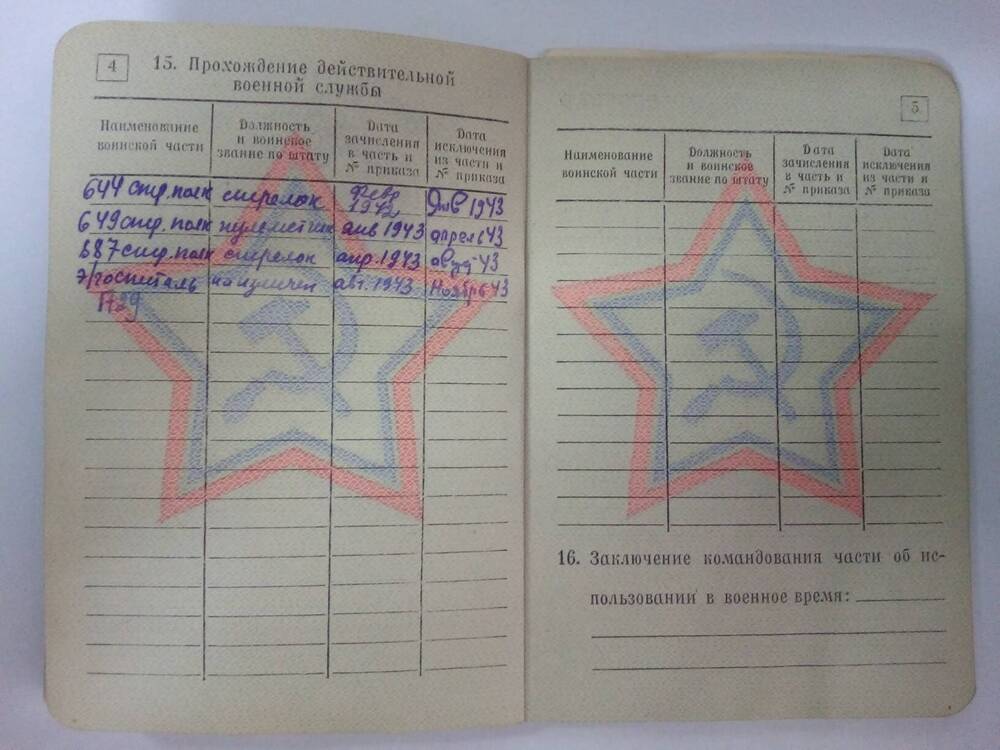 4
15. Прохождение действительной
военной службы
Наименование
воинской части
Должность
и воинское
звание по штату
Дата
зачисления
в часть и
№ приказа
Дата
исключения
из части и
№ приказа
644 стр. полк стрелок февр 1942 Янв 1943
649 стр. полк пулеметчик янв 1943 апрель 43
687 стр. полк стрелок апр. 1943 август 43
э/госпиталь на излечен авг. 1943 Ноябрь 43
1729
5
Наименование
воинской части
Должность
и воинское
звание по штату
Дата
зачисления
в часть и
№ приказа
Дата
исключения
из части и
№ приказа
16. Заключение командования части об ис-
пользовании в военное время: